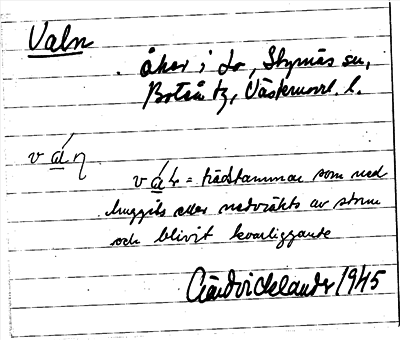 Valn
åker i Lo, Styrnäs sn,
Boteå tg, Västernorrl. l.
vá̲η
vá̲ɬ = trädstammar som ned
huggits eller nedvräkts av storm
och blivit kvarliggande
1945